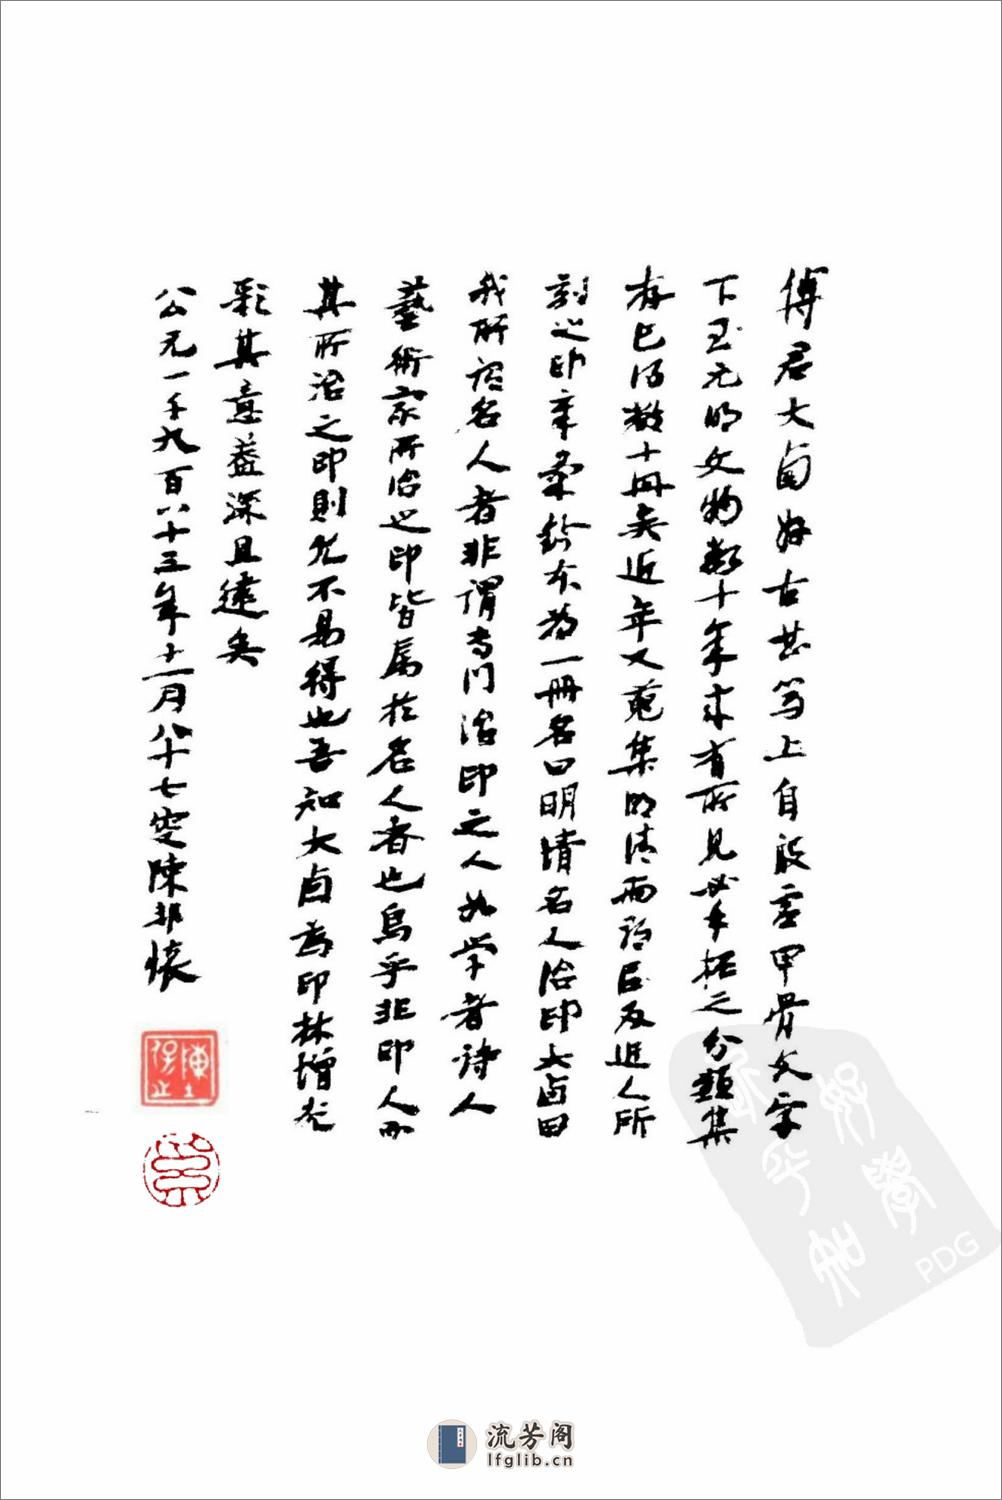 傅君大卣好古甚笃上自殷虚甲骨文字
下至元明文物数十年来有所见必手拓之分類集
存已得数十册矣近年又蒐集明清两代以及近人所
刻之印章彙鈐本为一册名曰明清名人治印大卣曰
我所谓名人者非謂专门治印之人如学者诗人
藝術家所治之印皆属於名人者也烏乎非印人而
其所治之印則尤不易得也吾知大卣為印林增光
彩其意蓋深且遠矣
公元一千九百八十三年十一月八十七叟陳邦懷
好學
PDG
流芳阁
lfglib.cn